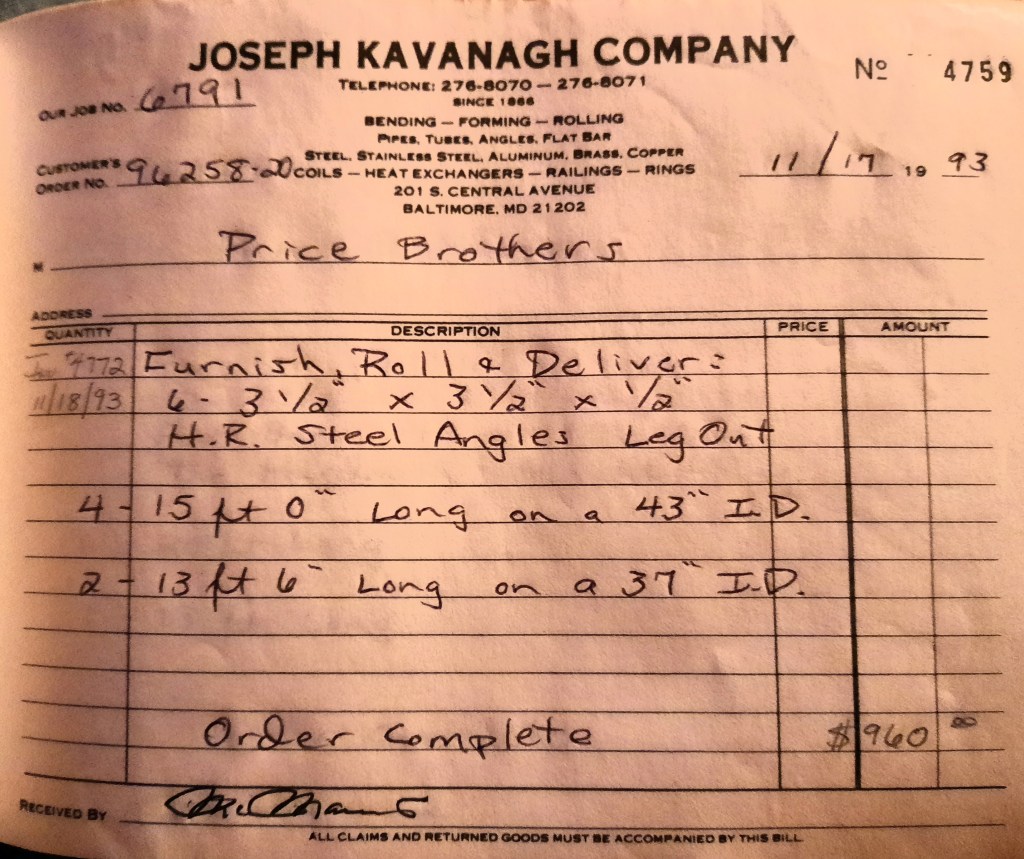 JOSEPH KAVANAGH COMPANY
Nº 4759
TELEPHONE: 276-8070 — 276-8071
SINCE 1866
OUR JOB NO. 6791
BENDING — FORMING — ROLLING
PIPES, TUBES, ANGLES, FLAT BAR
STEEL, STAINLESS STEEL, ALUMINUM, BRASS, COPPER
CUSTOMER'S ORDER NO. 96258-20
COILS — HEAT EXCHANGERS — RAILINGS — RINGS
11/17 19 93
201 S. CENTRAL AVENUE
BALTIMORE, MD 21202
M Price Brothers
ADDRESS
QUANTITY DESCRIPTION PRICE AMOUNT
#4772 Furnish, Roll & Deliver:
11/18/93 6 - 3 1/2" x 3 1/2" x 1/2"
H.R. Steel Angles Leg Out
4 - 15 ft 0" Long on a 43" I.D.
2 - 13 ft 6" Long on a 37" I.D.
Order Complete $960 00
RECEIVED BY
ALL CLAIMS AND RETURNED GOODS MUST BE ACCOMPANIED BY THIS BILL